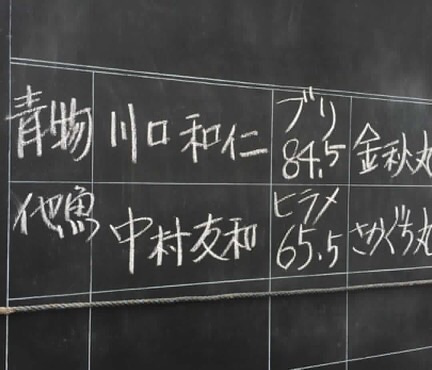 青物 川口和仁 ブリ 84.5 金秋丸
他魚 中村友和 ヒラメ 65.5 さかぐち丸